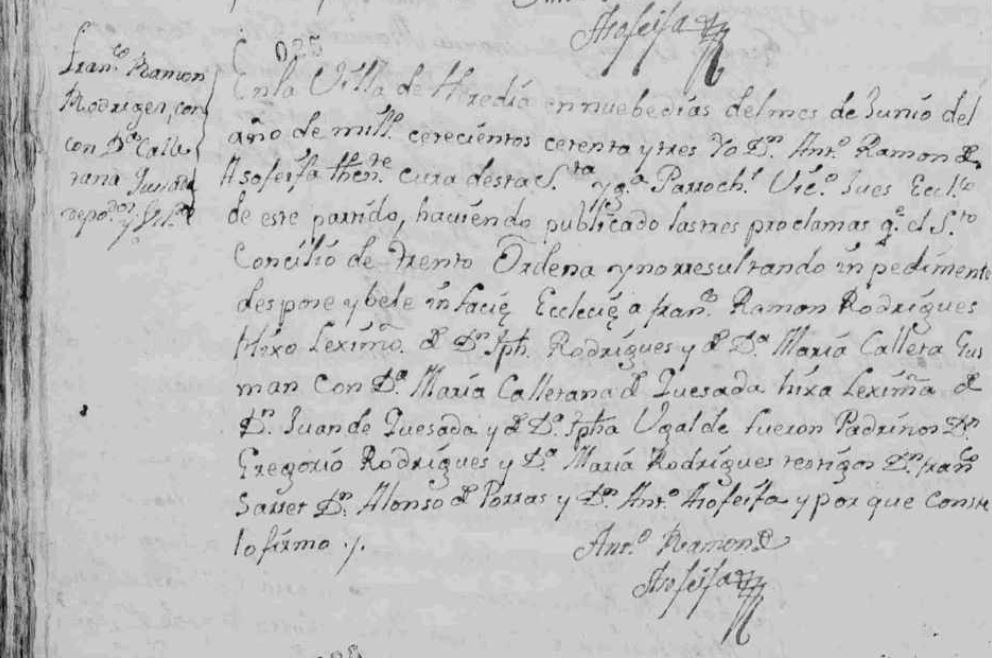 Asofeifa
925
Fran.co Ramon
Rodriges, con
con D.a Calle
tana
En la Villa de Heredia en nuebe dias del mes de Junio del
año de mill. cetecientos cetenta y tres Yo D.n Ant.o Ramon de
Asofeifa then.te cura desta S.ta Yg.a Parroch.l Vic.o Jues Eccl.co
de este partido, haviendo publicado las tres proclamas q.e el S.to
Concilio de Trento Ordena y no rresultando inpedimento
despose y bele in facie Ecclecie a fran.co Ramon Rodrigues
Hixo Leximo. de D.n Jph. Rodrigues y de D.a Maria Calleta Gus
man con D.a Maria Calletana de Quesada hixa Lexima de
D.n Juan de Quesada y de D.a Jpha Ugalde fueron Padrinos D.n
Gregorio Rodrigues y D.a Maria Rodrigues testigos D.n fran.co
Sarret D.n Alonso de Porras y D.n Ant.o Asofeifa y por que Conste
lo firmo.
Ant.o Ramon de
Asofeifa